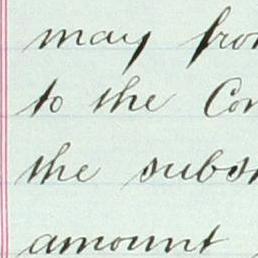 may fro
to the Con
the subs
amount